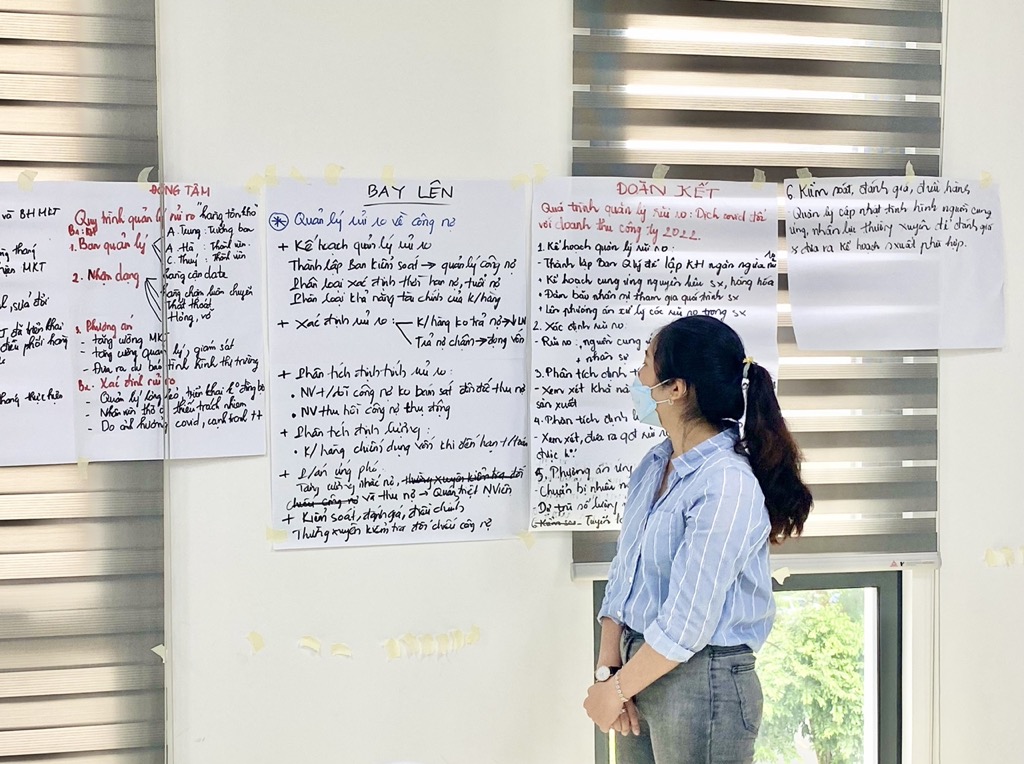 và BH MKT
MKT
sửa đổi
triển khai
thực hiện
ĐỒNG TÂM
Quy trình quản lý rủi ro "hàng tồn kho"
1. Ban quản lý
A. Trung: Trưởng ban
A. Hà: Thành viên
C. Thuý: Thành viên
2. Nhận dạng
hàng cận date
Hàng chậm luân chuyển
Thất thoát
Hỏng, vỡ
3. Phương án
- tăng cường MK
- tăng cường quản lý, giám sát
- Đưa ra dự báo tình hình thị trường
Xác định rủi ro
- Quản lý lỏng lẻo, triển khai ko đồng bộ
- Nhân viên thiếu trách nhiệm
- Do ảnh hưởng covid, cạnh tranh tt
BAY LÊN
Quản lý rủi ro về công nợ
+ Kế hoạch quản lý rủi ro
Thành lập Ban kiểm soát → quản lý công nợ
Phân loại xác định thời hạn nợ, tuổi nợ
Phân loại khả năng tài chính của k/hàng
+ Xác định rủi ro:
K/hàng ko trả nợ →
Trả nợ chậm → đọng vốn
+ Phân tích định tính rủi ro:
• NV t/dõi công nợ ko bám sát đôn đốc thu nợ
• NV thu hồi công nợ thụ động
+ Phân tích định lượng:
• K/hàng chiếm dụng vốn khi đến hạn t/toán
+ P/án ứng phó
Tăng cường nhắc nợ, thường xuyên kiểm tra đối
chiếu công nợ và thu nợ → Quán triệt NViên
+ Kiểm soát, đánh giá, điều chỉnh
Thường xuyên kiểm tra đối chiếu công nợ
ĐOÀN KẾT
Quá trình quản lý rủi ro: Dịch covid đối
với doanh thu công ty 2022.
1. Kế hoạch quản lý rủi ro:
- Thành lập Ban Qlý để lập KH ngăn ngừa
• Kế hoạch cung ứng nguyên liệu sx, hàng hóa
• Đảm bảo nhân sự tham gia quá trình sx
• Lên phương án xử lý các rủi ro trong sx
2. Xác định rủi ro:
- Rủi ro: nguồn cung
+ nhân sự
3. Phân tích định
- Xem xét khả nă
sản xuất
4. Phân tích định l
- Xem xét, đưa ra
5. Phương án ứng
- Chuẩn bị nhiều
- Dự trù số lượng
- Tuyển
6. Kiểm soát, đánh giá, điều hành
Quản lý cập nhật tình hình nguồn cung
ứng, nhân lực thường xuyên để đánh giá
x đưa ra kế hoạch sxuất phù hợp.